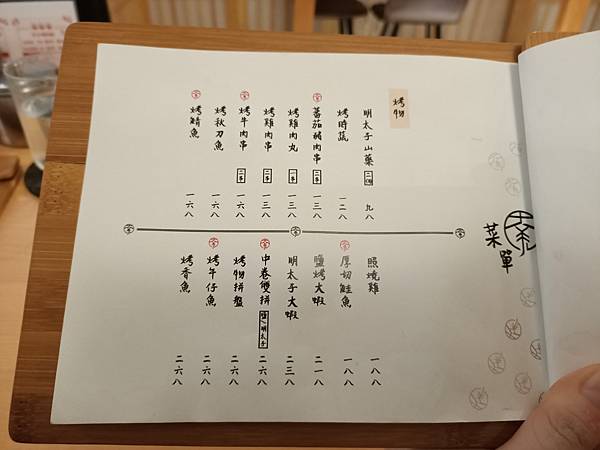 菜單
烤物
明太子山藥 九八
烤時蔬 一二八
蕃茄豬肉串 二串 一三八
烤雞肉丸 一串 一三八
烤雞肉串 二串 一三八
烤牛肉串 二串 一六八
烤秋刀魚 一六八
烤鯖魚 一六八
照燒雞 一八八
厚切鮭魚 一八八
鹽烤大蝦 二一八
明太子大蝦 二三八
中卷雙拼 鹽/明太子 二六八
烤物拼盤 二六八
烤午仔魚 二六八
烤香魚 二六八